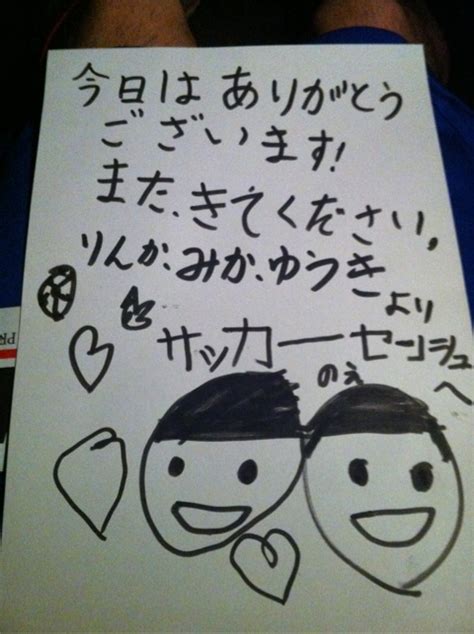 今日は ありがとう
ございます!
また、きてください。
りんか、みか、ゆうき より
サッカーセンシュ
のえ
へ
PR